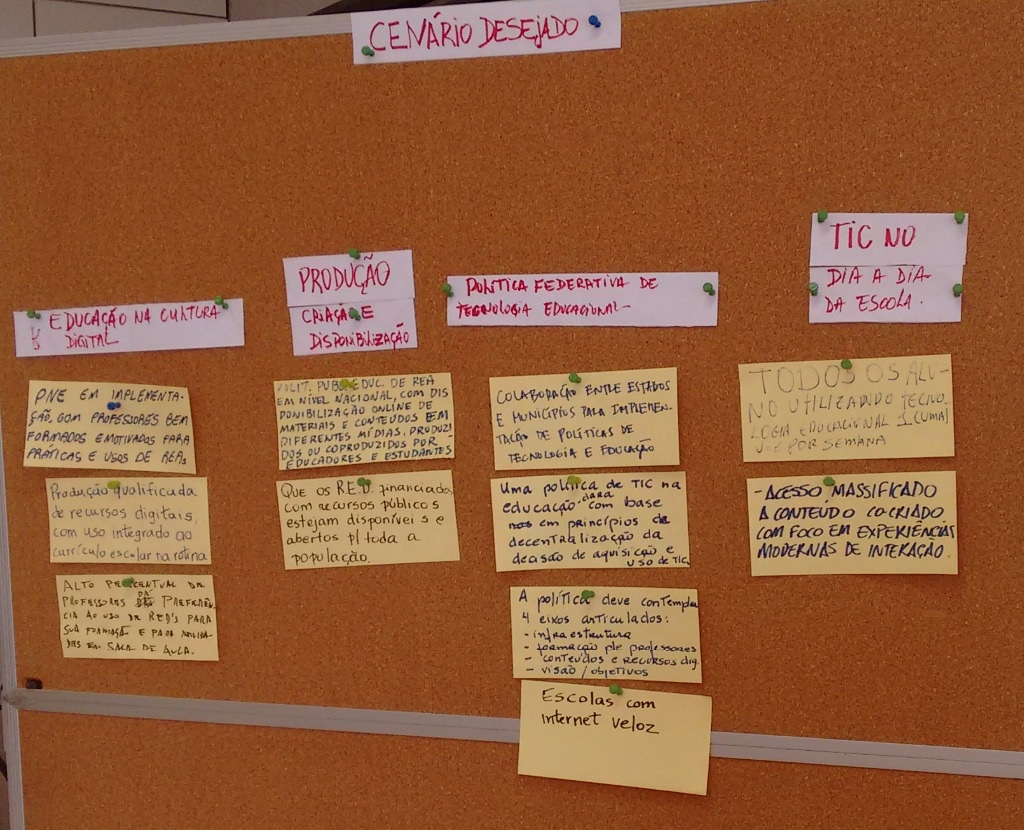 CENÁRIO DESEJADO
EDUCAÇÃO NA CULTURA
DIGITAL
PNE EM IMPLEMENTA-
ÇÃO, COM PROFESSORES BEM
FORMADOS E MOTIVADOS PARA
PRÁTICAS E USOS DE REAs
Produção qualificada
de recursos digitais,
com uso integrado ao
currículo escolar na rotina
ALTO PERCENTUAL DE
PROFESSORES DÁ PREFERÊN-
CIA AO USO DE RED'S PARA
SUA FORMAÇÃO E PARA
EM SALA DE AULA.
PRODUÇÃO
CRIAÇÃO E
DISPONIBILIZAÇÃO
POLIT. PUB. EDUC. DE REA
EM NÍVEL NACIONAL, COM DIS
PONIBILIZAÇÃO ONLINE DE
MATERIAIS E CONTEÚDOS EM
DIFERENTES MÍDIAS, PRODUZI
DOS OU COPRODUZIDOS POR
EDUCADORES E ESTUDANTES
Que os R.E.D. financiados
com recursos público s
estejam disponívei s e
abertos p/ toda a
população.
POLÍTICA FEDERATIVA DE
TECNOLOGIA EDUCACIONAL-
COLABORAÇÃO ENTRE ESTADOS
E MUNICÍPIOS PARA IMPLEMEN-
TAÇÃO DE POLÍTICAS DE
TECNOLOGIA E EDUCAÇÃO
Uma política de TIC na
educação clara com base
em princípios de
decentralização da
decisão de aquisição e
uso de TIC
A política deve contemplar
4 eixos articulados:
- infraestrutura
- formação de professores
- conteúdos e recursos dig.
- visão/objetivos
Escolas com
internet veloz
TIC NO
DIA A DIA-
DA ESCOLA.
TODOS OS ALU-
NO UTILIZANDO TECNO
LOGIA EDUCACIONAL 1 (UMA)
VEZ POR SEMANA
- ACESSO MASSIFICADO
A CONTEÚDO CO-CRIADO
COM FOCO EM EXPERIÊNCIAS
MODERNAS DE INTERAÇÃO.